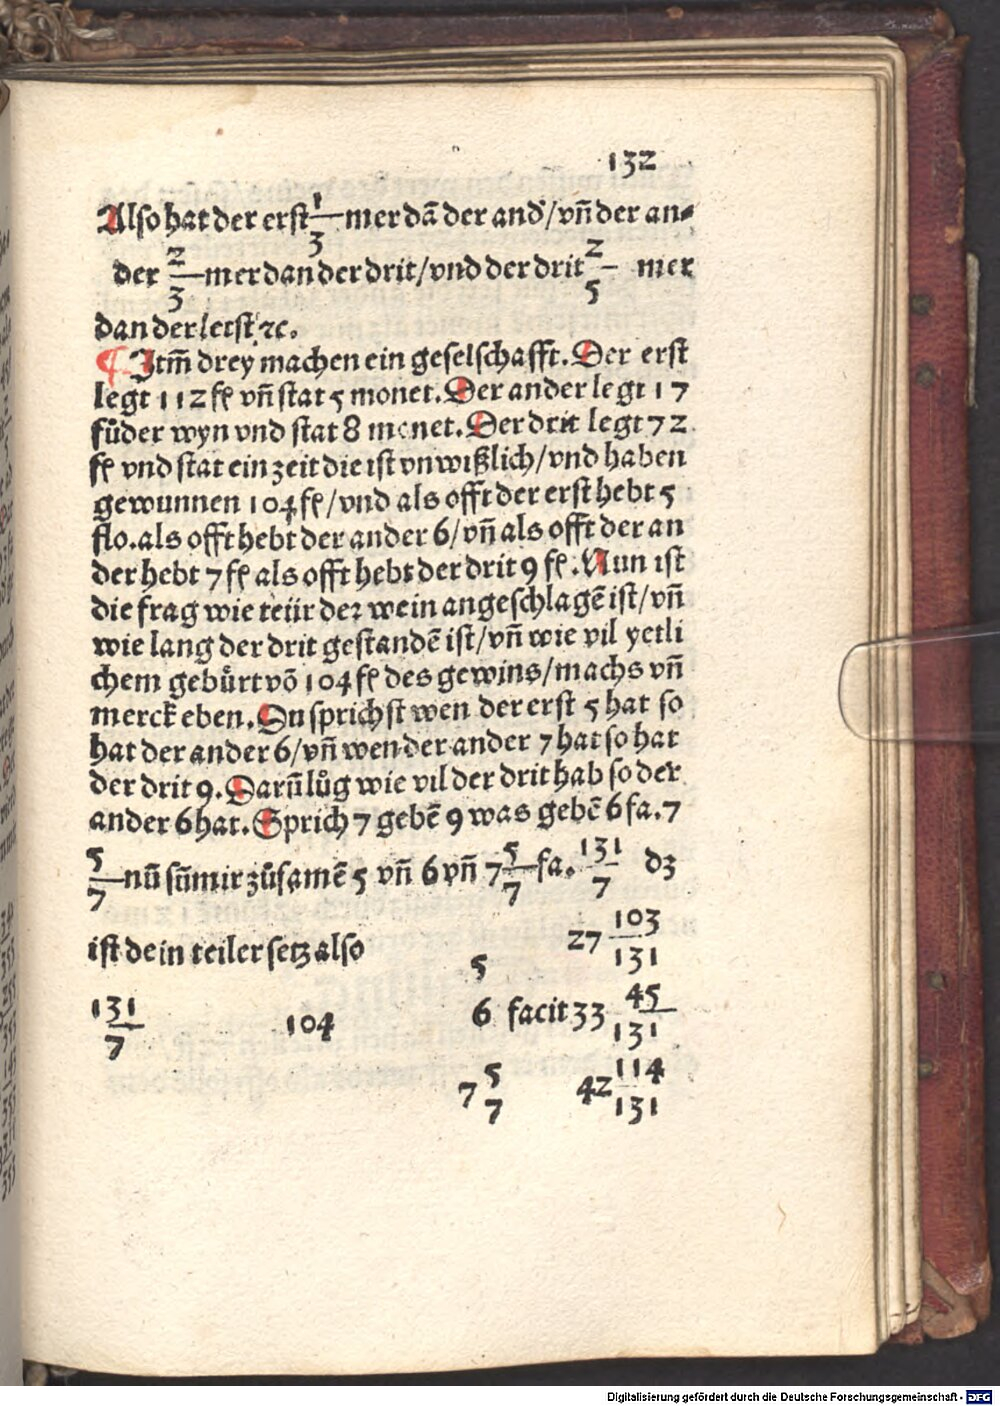 132
Also hat der erst 1/3 mer dā der and'/vñ der an⸗
der 2/3 mer dan der drit/vnd der drit 2/5 mer
dan der letst ꝛc.
¶ Itm̄ drey machen ein geselschafft. Der erst
legt 112 fl vñ stat 5 monet. Der ander legt 17
fůder wyn vnd stat 8 monet. Der drit legt 72
fl vnd stat ein zeit die ist vnwißlich/vnd haben
gewunnen 104 fl/vnd als offt der erst hebt 5
flo. als offt hebt der ander 6/vñ als offt der an
der hebt 7 fl als offt hebt der drit 9 fl. Nun ist
die frag wie teür der wein angeschlagē ist/vñ
wie lang der drit gestandē ist/vñ wie vil yetli
chem gebürt vō 104 fl des gewins/machs vñ
merck eben. Du sprichst wen der erst 5 hat so
hat der ander 6/vñ wen der ander 7 hat so hat
der drit 9. Darū lůg wie vil der drit hab so der
ander 6 hat. Sprich 7 gebē 9 was gebē 6 fa. 7
5/7 nū sūmir zůsamē 5 vñ 6 vñ 7 5/7 fa. 131/7 dz
ist dein teiler setz also
5 27 103/131
131/7 104 6 facit 33 45/131
7 5/7 42 114/131
Digitalisierung gefördert durch die Deutsche Forschungsgemeinschaft - DFG